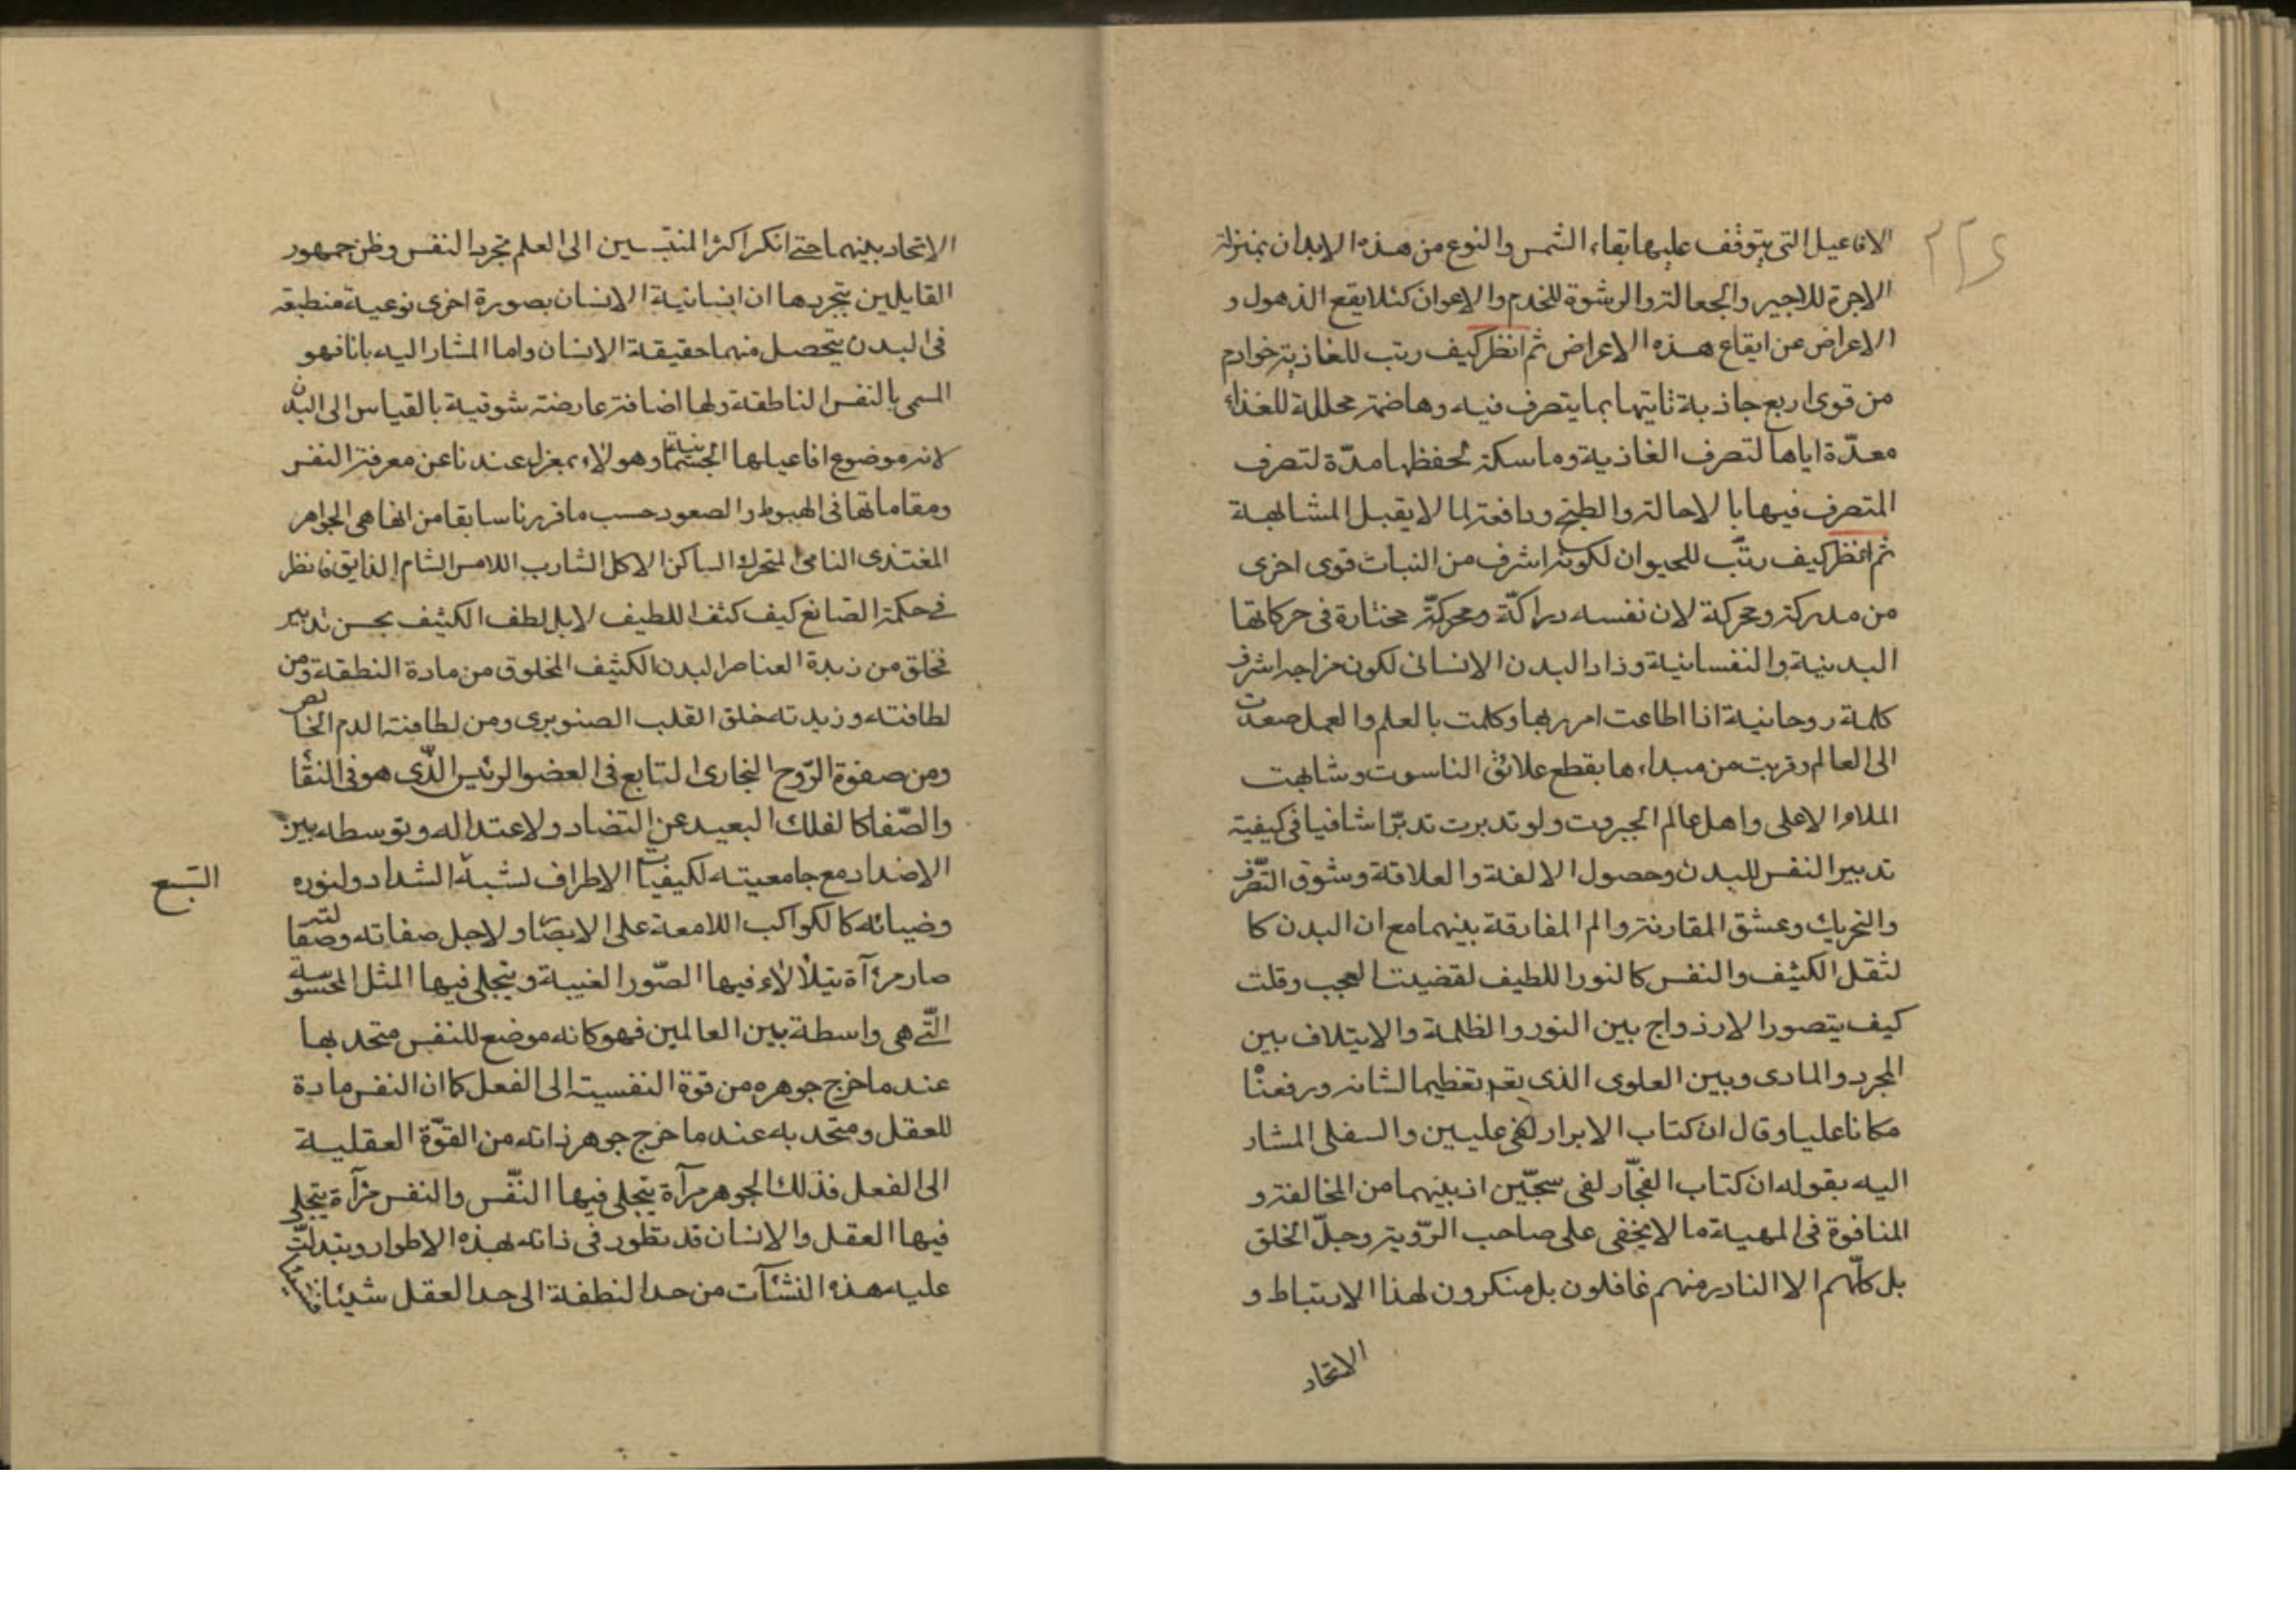 ٢٢٤
الافاعيل التى يتوقف عليها بقاء الشمس والنوع من هذه الابدان بمنزلة
الاجرة للاجير والجعالة والرشوة للخدم والاعوان كئلا يقع الذهول و
الاعراض عن ايقاع هذه الاعراض ثم انظر كيف رتب للغاذية خوادم
من قوى اربع جاذبة تاتيها بما يتصرف فيه وهاضمة محللة للغذاء
معدّة اياها لتصرف الغاذية وماسكة تحفظها مدّة لتصرف
المتصرف فيها بالاحالة والطبخ ودافعة لما لا يقبل المشابهة
ثم انظر كيف رتّب للحيوان لكونه اشرف من النبات قوى اخرى
من مدركة ومحركة لان نفسه دراكّة ومحركّة مختارة فى حركاتها
البدنية والنفسانية وزاد البدن الانسانى لكون مزاجه اشرف
كلمة روحانية اذا اطاعت امر ربها وكملت بالعلم والعمل صعدت
الى العالم وقربت من مبداءها بقطع علائق الناسوت وشابهت
الملاء الاعلى واهل عالم الجبروت ولو تدبرت تدبّرا شافيا فى كيفية
تدبير النفس للبدن وحصول الالفة والعلاقة وشوق التصّرف
والتحريك وعشق المقارنة والم المفارقة بينهما مع ان البدن كا
لثقل الكثيف والنفس كالنور اللطيف لقضيت العجب وقلت
كيف يتصور الازدواج بين النور والظلمة والايتلاف بين
المجرد والمادى وبين العلوى الذى يقم تغظيما لشانه ورفعنا
مكانا عليا وقال ان كتاب الابرار لفى عليين والسفلى المشار
اليه بقوله ان كتاب الفجّار لفى سجّين اذ بينهما من المخالفة و
المنافرة فى المهية ما لا يخفى على صاحب الرّوية وجلّ الخلق
بل كلّهم الا النادر منهم غافلون بل منكرون لهذا الارتباط و
الاتحاد
الاتحاد بينهما حتى انكر اكثر المنتسبين الى العلم تجرد النفس وظن جمهور
القايلين بتجردها ان انسانية الانسان بصورة اخرى نوعية منطبعة
فى البدن يتحصل منهما حقيقة الانسان واما المشار اليه بانا فهو
المسمى بالنفس الناطقة ولها اضافة عارضة شوقية بالقياس الى البدن
لانه موضوع افاعيلها الجسمانية وهولاء بمعزل عندنا عن معرفة النفس
ومقاماتها فى الهبوط والصعود حسب ما قررنا سابقا من انها هى الجواهر
المغتذى النامى المتحرك الساكن الاكل الشارب اللامس الشام الذايق فانظر
فى حكمة الصانع كيف كثف اللطيف لا بل لطف الكثيف بحسن تدبير
فخلق من زبدة العناصر البدن الكثيف المخلوق من مادة النطفة ومن
لطافته وزبدته خلق القلب الصنوبرى ومن لطافة الدم الخالص
ومن صفوة الرّوح البخارى التابع فى العضو الرئيس الذّى هو فى النقا
والصّفا كالفلك البعيد عن التضاد ولاعتداله وتوسطه بين
الاضداد مع جامعيته لكيفيات الاطراف لشبه الشداد ولنوره
السّبع
وضيائه كالكواكب اللامعة على الابصار ولاجل صفاته وصقالته
صار مرآة يتلألاء فيها الصّور الغيبة ويتجلى فيها المثل المحسوسة
التّى هى واسطة بين العالمين فهو كانه موضع للنفس متحد بها
عند ما خرج جوهره من قوة النفسية الى الفعل كما ان النفس مادة
للعقل ومتحد به عند ما خرج جوهر ذاته من القوّة العقلية
الى الفعل فذلك الجوهر مرآة يتجلى فيها النّفس والنفس مرآة يتجلى
فيها العقل والانسان قد تطور فى ذاته بهذه الاطوار وتبدلّت
عليه هذه النشآت من حد النطفة الى حد العقل شيئا فشيئا